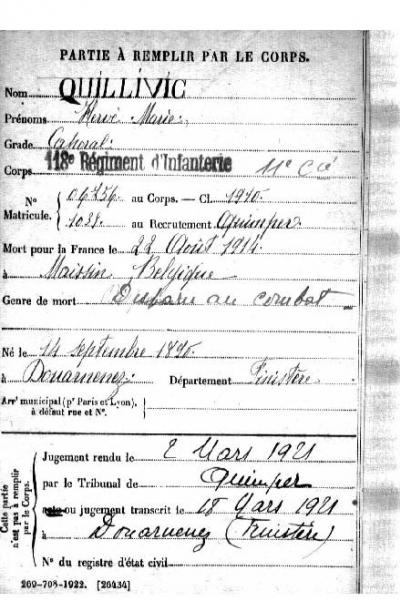 PARTIE À REMPLIR PAR LE CORPS.
Nom QUILLIVIC
Prénoms Hervé Marie
Grade Caporal
Corps 118e Régiment d'Infanterie 11e Cie
N° Matricule. { au Corps. — Cl. 1910.
1028. au Recrutement Quimper
Mort pour la France le 22 Août 1914
à Maissin, Belgique
Genre de mort Disparu au combat
Né le 14 septembre
à Douarnenez Département Finistère
Arrt municipal (pr Paris et Lyon), à défaut rue et N°.
Cette partie n'est pas à remplir par le Corps.
Jugement rendu le 2 Mars 1921
par le Tribunal de Quimper
acte ou jugement transcrit le 18 Mars 1921
à Douarnenez (Finistère)
N° du registre d'état civil
269-708-1922. [26434]